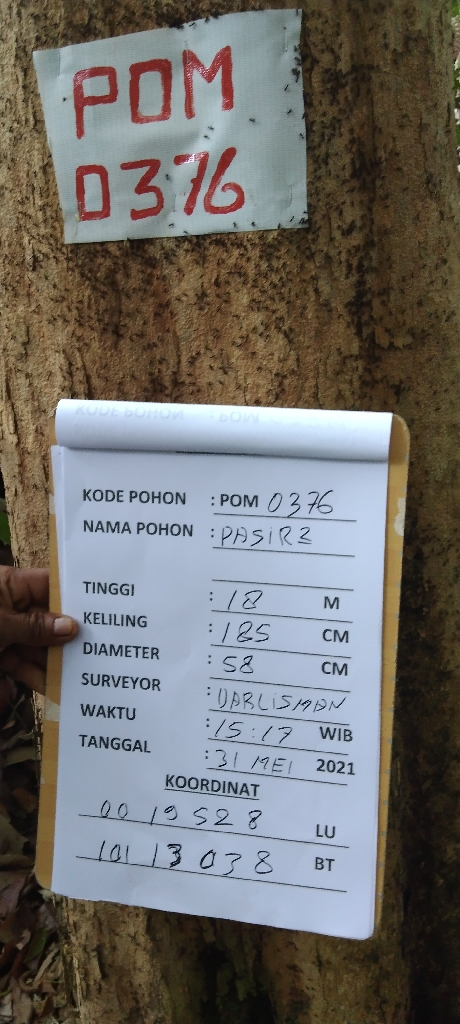 POM
0376
KODE POHON : POM 0376
NAMA POHON : PASIR2
TINGGI : 18 M
KELILING : 185 CM
DIAMETER : 58 CM
SURVEYOR : DARLISMAN
WAKTU : 15:17 WIB
TANGGAL : 31 MEI 2021
KOORDINAT
00 19 528 LU
101 13 038 BT